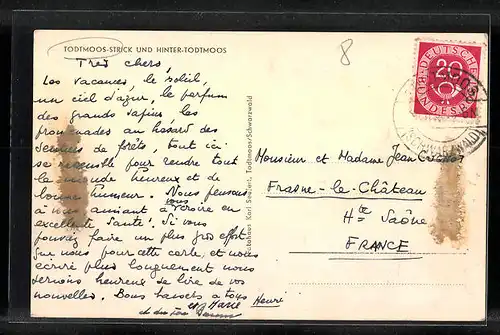 TODTMOOS-STRICK UND HINTER-TODTMOOS
8
Très chers,
Les vacances, le soleil,
un ciel d'azur, le parfum
des grands sapins les
promenades au hasard des
sentiers de forêts, tout ici
se rassemble pour rendre tout
le monde heureux et de
bonne humeur. Nous pensons
à vous aimant à vous croire en
excellente santé! Si vous
pouvez faire un plus gros effort
que nous pour cette carte, et nous
écrire plus longuement nous
serons heureux de lire de vos
nouvelles. Bons baisers à tous
et Marie Henri
Autohaus Karl Todtmoos/Schwarzwald
DEUTSCHE
BUNDESPOST
20
(SCHWARZWALD)
Monsieur et Madame Jean
Frasne-le-Château
Hte Saône
FRANCE